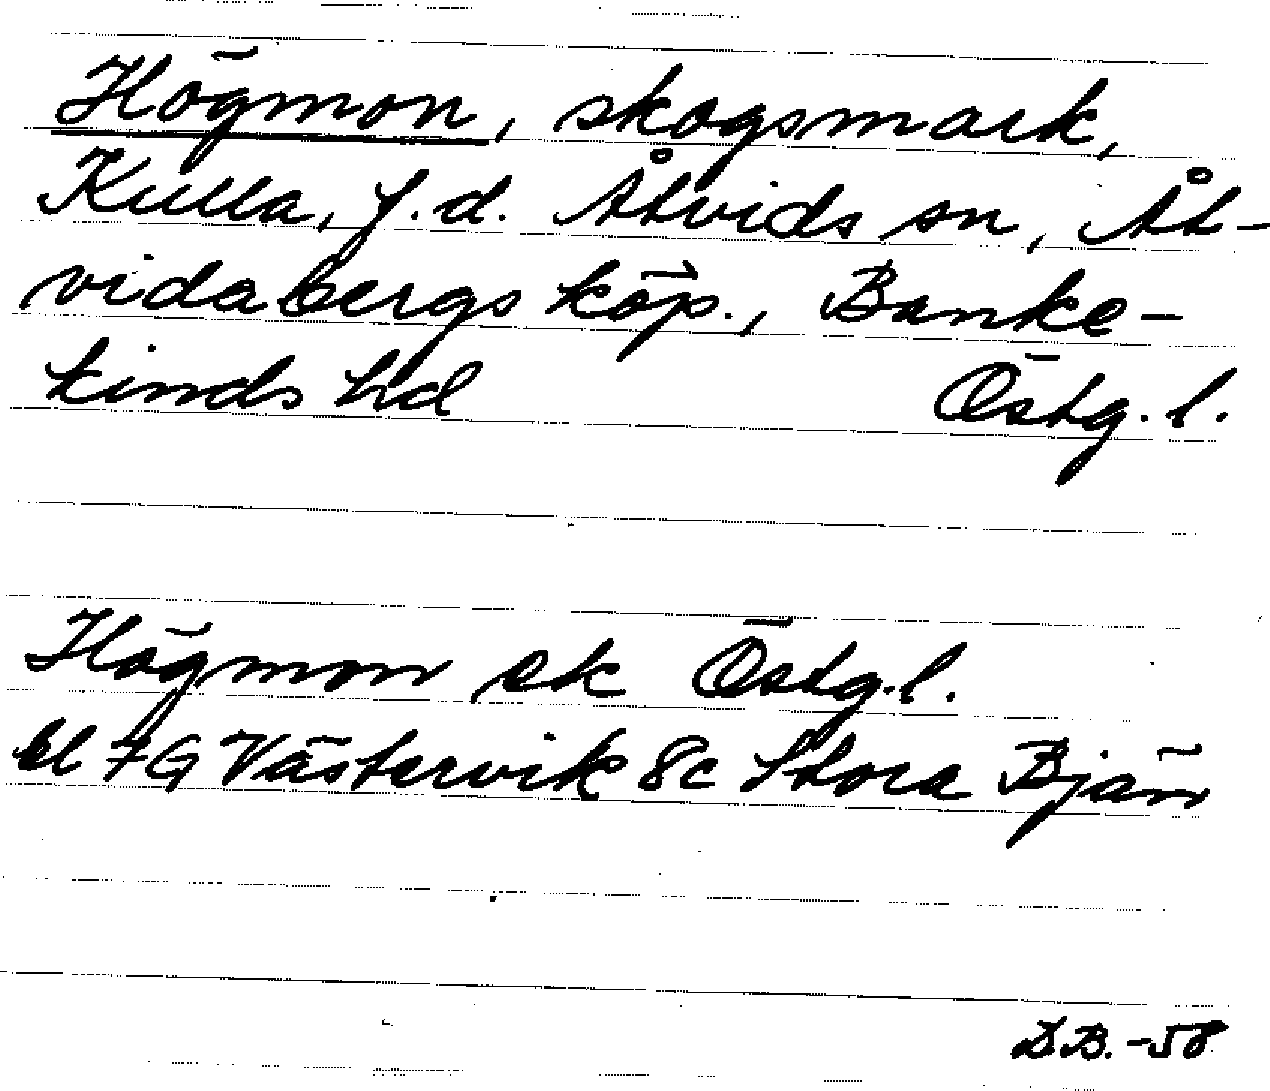 Högmon, skogsmark,
Kulla, f.d. Åtvids sn, Åt-
vidabergs köp., Banke-
kinds hd Östg. l.
Högmon ek Östg.l.
bl 7G Västervik 8c Stora Bjän
D.B. -58